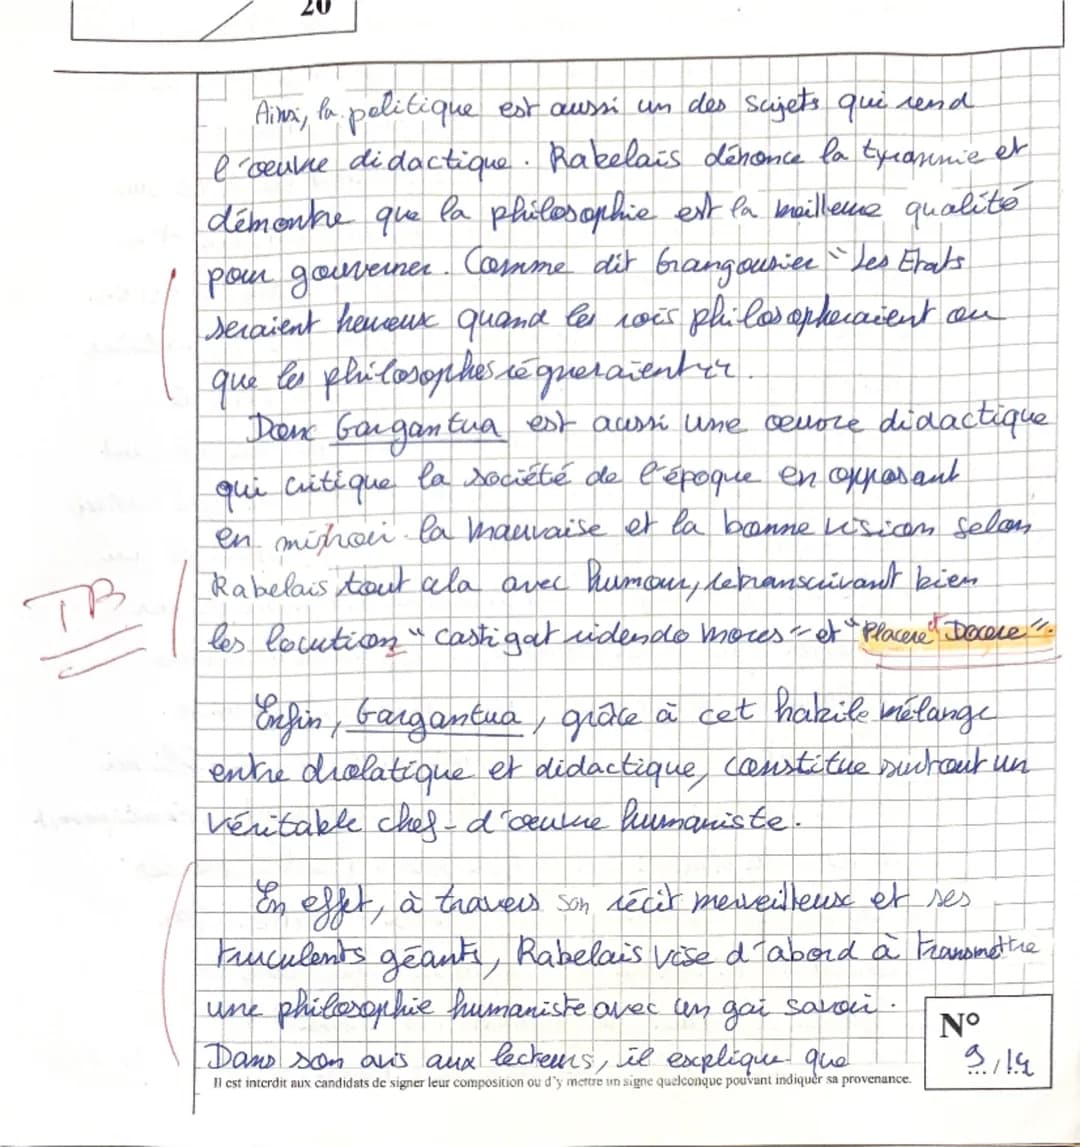 20
Ainsi, la politique est aussi un des sujets qui rend
l'œuvre didactique. Rabelais dénonce la tyrannie et
démontre que la philosophie est la meilleure qualité
pour gouverner. Comme dit Grangousier "Les Etats
seraient heureux quand les rois philosopheraient ou
que les philosophes régneraient".
Donc Gargantua est aussi une œuvre didactique
qui critique la société de l'époque en opposant
en miroir la mauvaise et la bonne vision selon
Rabelais tout cela avec humour, retranscrivant bien
TB
les locution "castigat ridendo mores" et "Placere et Docere".
Enfin, Gargantua, grâce à cet habile mélange
entre drolatique et didactique, constitue surtout un
véritable chef-d'œuvre humaniste.
En effet, à travers son récit merveilleux et ses
truculents géants, Rabelais vise d'abord à transmettre
une philosophie humaniste avec un gai savoir.
Dans son avis aux lecteurs, il explique que
N°
9/14
Il est interdit aux candidats de signer leur composition ou d'y mettre un signe quelconque pouvant indiquer sa provenance.